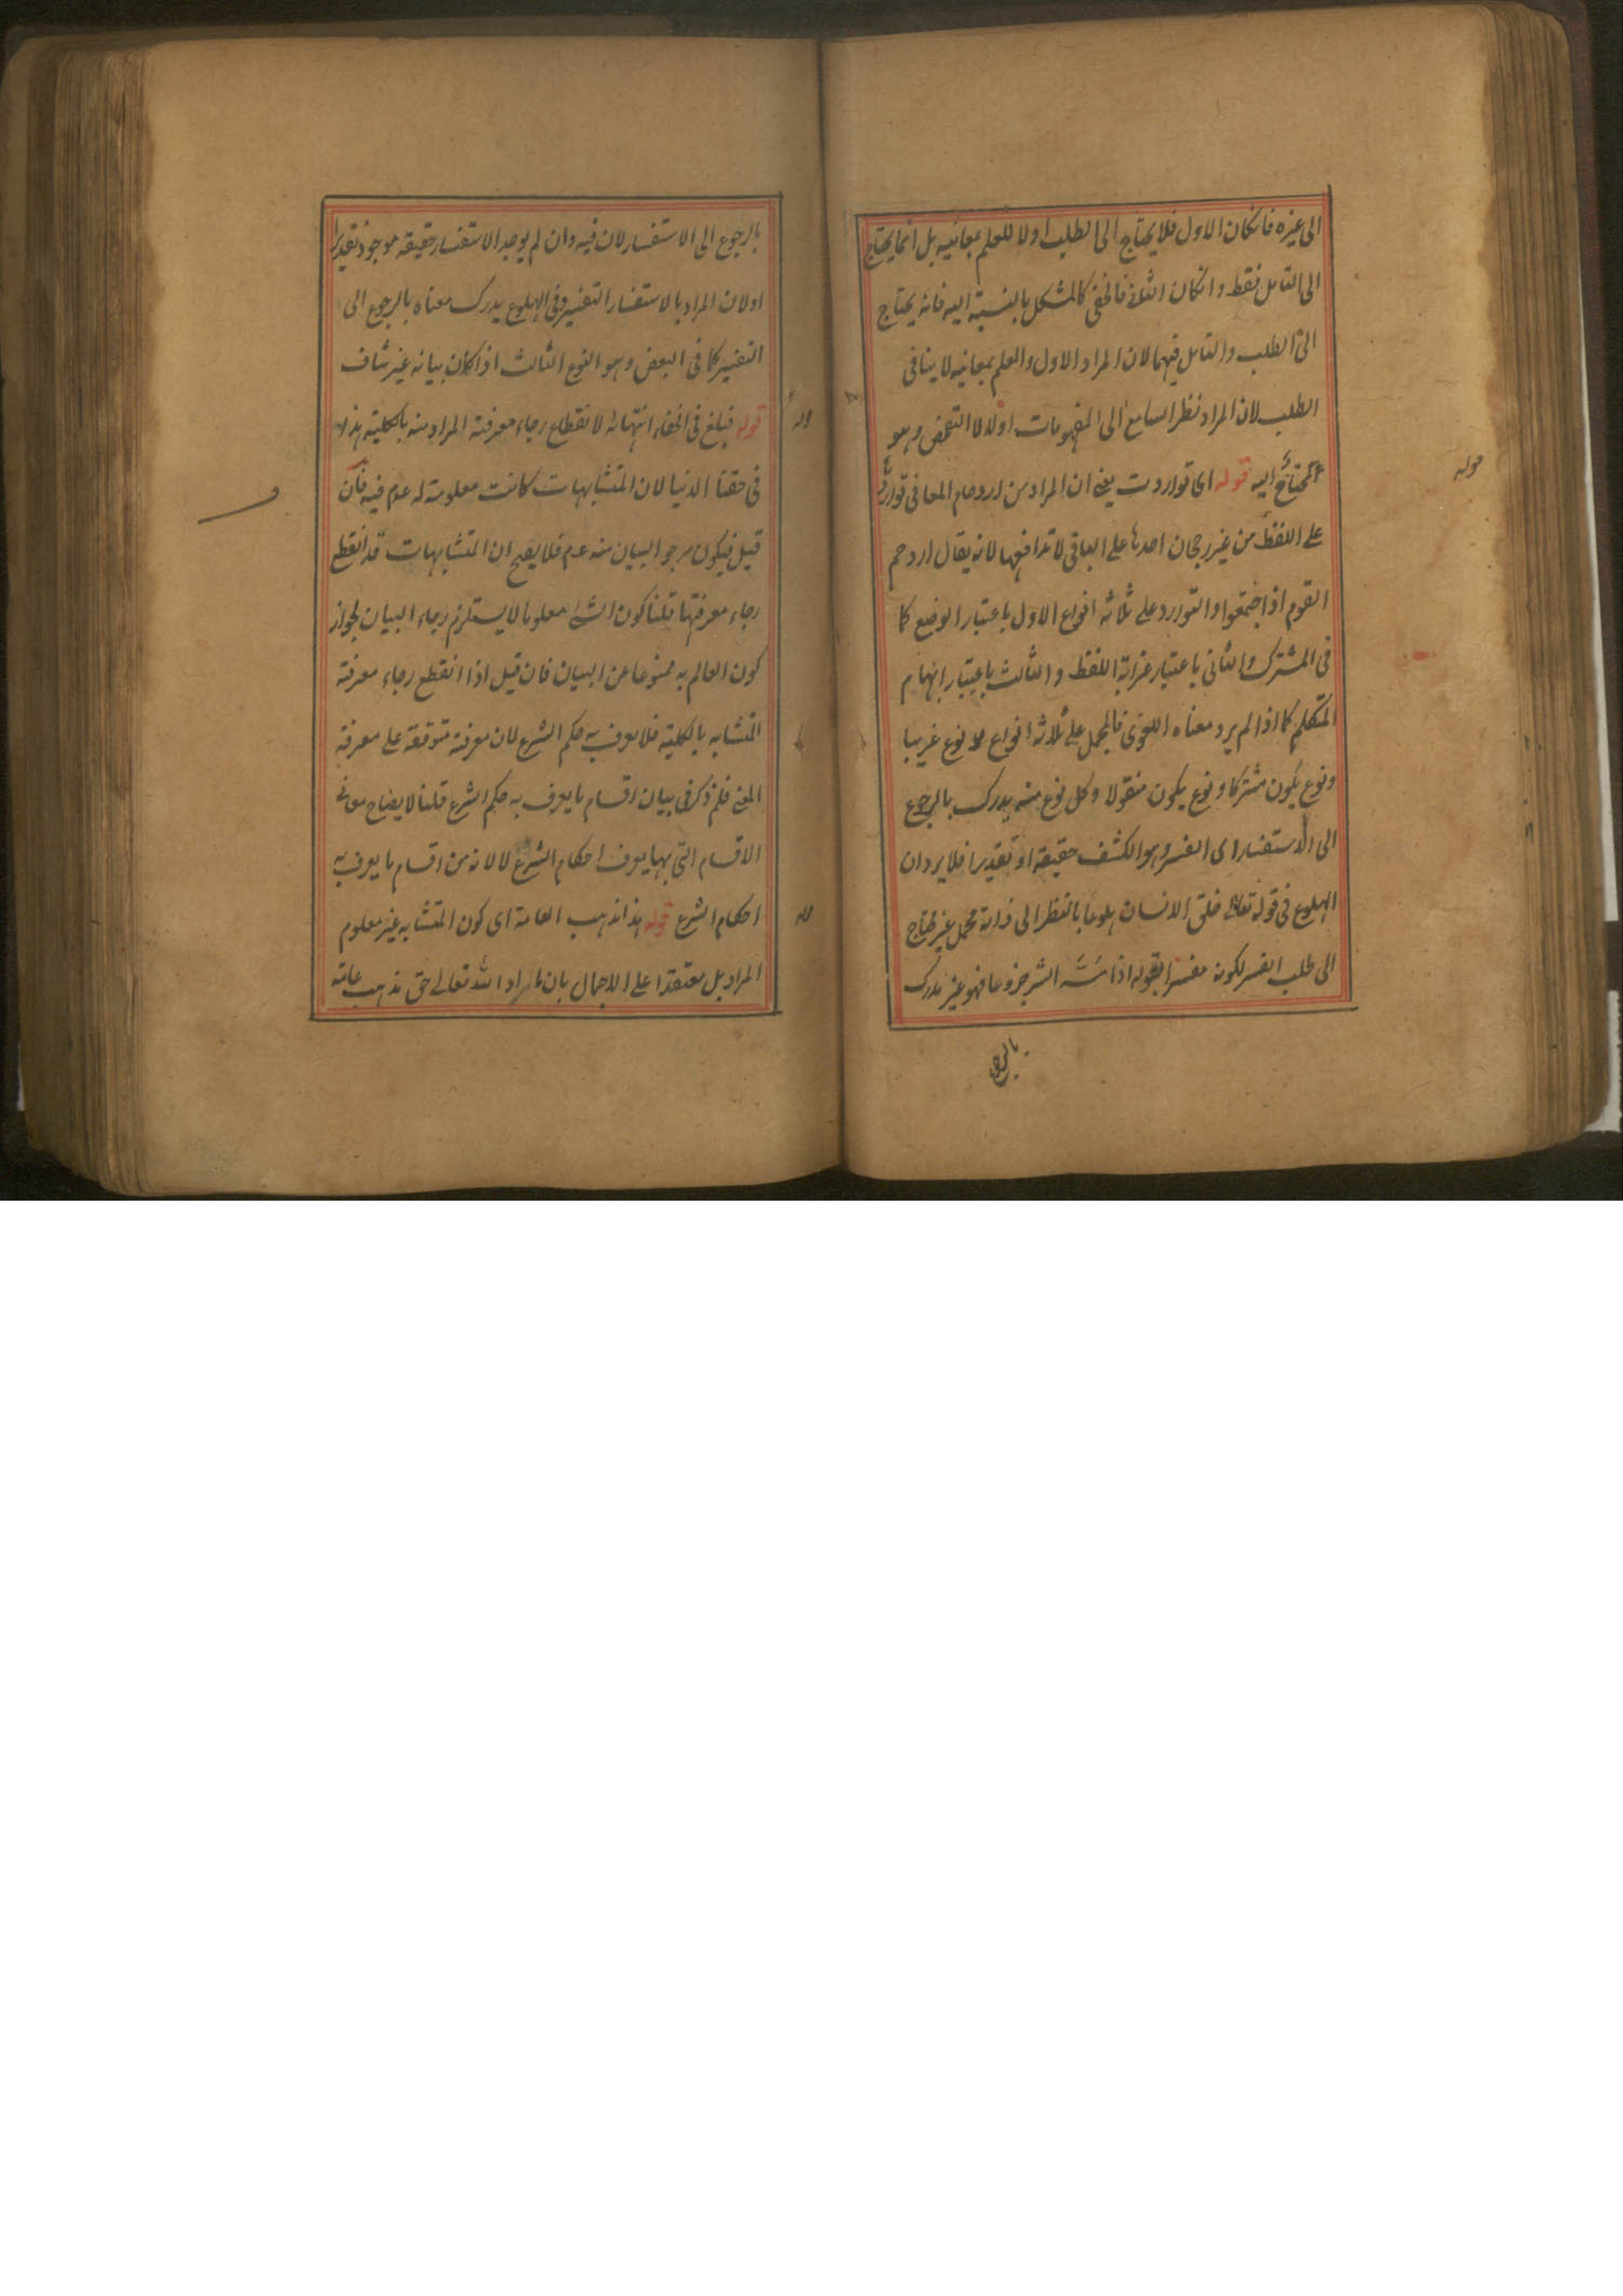 الى غيره فانكان الاول فلا يحتاج الى الطلب اولا للعلم بمعانيه بل انما يحتاج
الى التامل فقط وانكان الثانى فالخفى كالمشكل بالنسبة اليه فانه يحتاج
الى الطلب والتامل فيهما لان المراد الاول والعلم بمعانيه لا ينافى
الطلب لان المراد نظر السامع الى المفهومات اولا لا التفحص وهو
المحتاج اليه قوله اى تواردت يعنى ان المراد من ازدحام المعانى تواردها
على اللفظ من غير رجحان احدها على الباقى لا تدافعها لانه يقال ازدحم
القوم اذا اجتمعوا والتوارد على ثلاثة انواع الاول باعتبار الوضع كما
فى المشترك والثانى باعتبار غرابة اللفظ والثالث باعتبار ابهام
المتكلم كما اذا لم يرد معناه اللغوى فالمجمل على ثلاثة انواع نوع غريبا
ونوع يكون مشتركا ونوع يكون منقولا وكل نوع منه يدرك بالرجوع
الى الاستفسار اى الفسر وهو الكشف حقيقة او تقديرا فلا يرد ان
الهلوع فى قوله تعالى خلق الانسان هلوعا بالنظر الى ذاته مجمل غير محتاج
الى طلب الفسر لكونه مفسرا بقوله اذا مسه الشر جزوعا فهو غير مدرك
بالرجوع
قوله
بالرجوع الى الاستفسار لان فيه وان لم يوجد الاستفسار حقيقة موجود تقديرا
اولان المراد بالاستفسار التفسير وفى الهلوع يدرك معناه بالرجوع الى
التفسير كما فى البعض وهو النوع الثالث اذا كان بيانه غير شاف
قوله فبلغ فى الخفاء انتهائه لانقطاع رجاء معرفته المراد منه بالكلية هذا
فى حقنا الدنيا لان المتشابهات كانت معلومة له عم فيه فان
قيل فيكون مرجو البيان منه عم فلا يصح ان المتشابهات قد انقطع
رجاء معرفتها قلنا كون الشئ معلوما لا يستلزم رجاء البيان لجواز
كون العالم به ممنوعا عن البيان فان قيل اذا انقطع رجاء معرفة
المتشابه بالكلية فلا يعرف به حكم الشرع لان معرفته متوقفة على معرفة
المعنى فلم ذكر فى بيان اقسام ما يعرف به حكم الشرع قلنا لايضاح معانى
الاقسام التى بها يعرف احكام الشرع لا لانه من اقسام ما يعرف به
احكام الشرع قوله هذا مذهب العامة اى كون المتشابه غير معلوم
المراد بل معتقدا على الاجمال بان ما اراد الله تعالى حق مذهب عامة